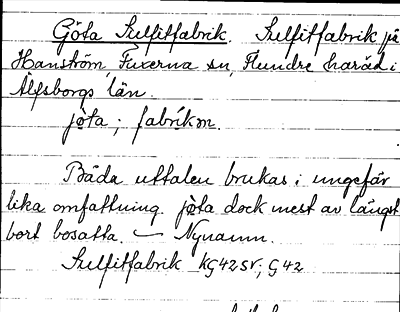 Göta Sulfitfabrik. Sulfitfabrik på
Hanström, Fuxerna sn, Flundre härad i
Älfsborgs län.
jöta; fabríkɷn.
Båda uttalen brukas i ungefär
lika omfattning. jöta dock mest av längst
bort bosatta. — Nynamn.
Sulfitfabrik KG 42 SV; G 42